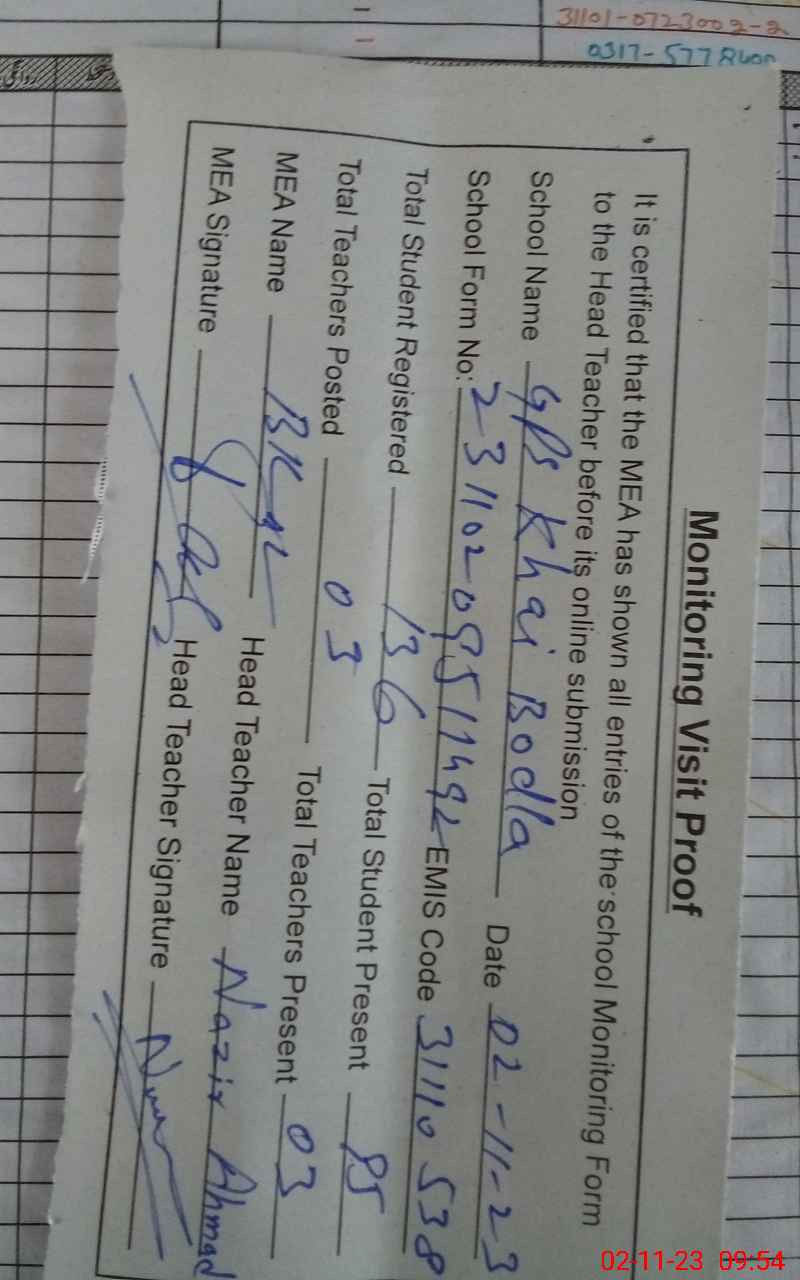 31101-0723002-2
Monitoring Visit Proof
It is certified that the MEA has shown all entries of the school Monitoring Form
to the Head Teacher before its online submission
School Name GPS Khai Bodla Date 02-11-23
School Form No: EMIS Code 31110538
Total Student Registered 136 Total Student Present 85
Total Teachers Posted 03 Total Teachers Present 03
MEA Name Head Teacher Name Nazir Ahmad
MEA Signature Head Teacher Signature
02-11-23 09:54